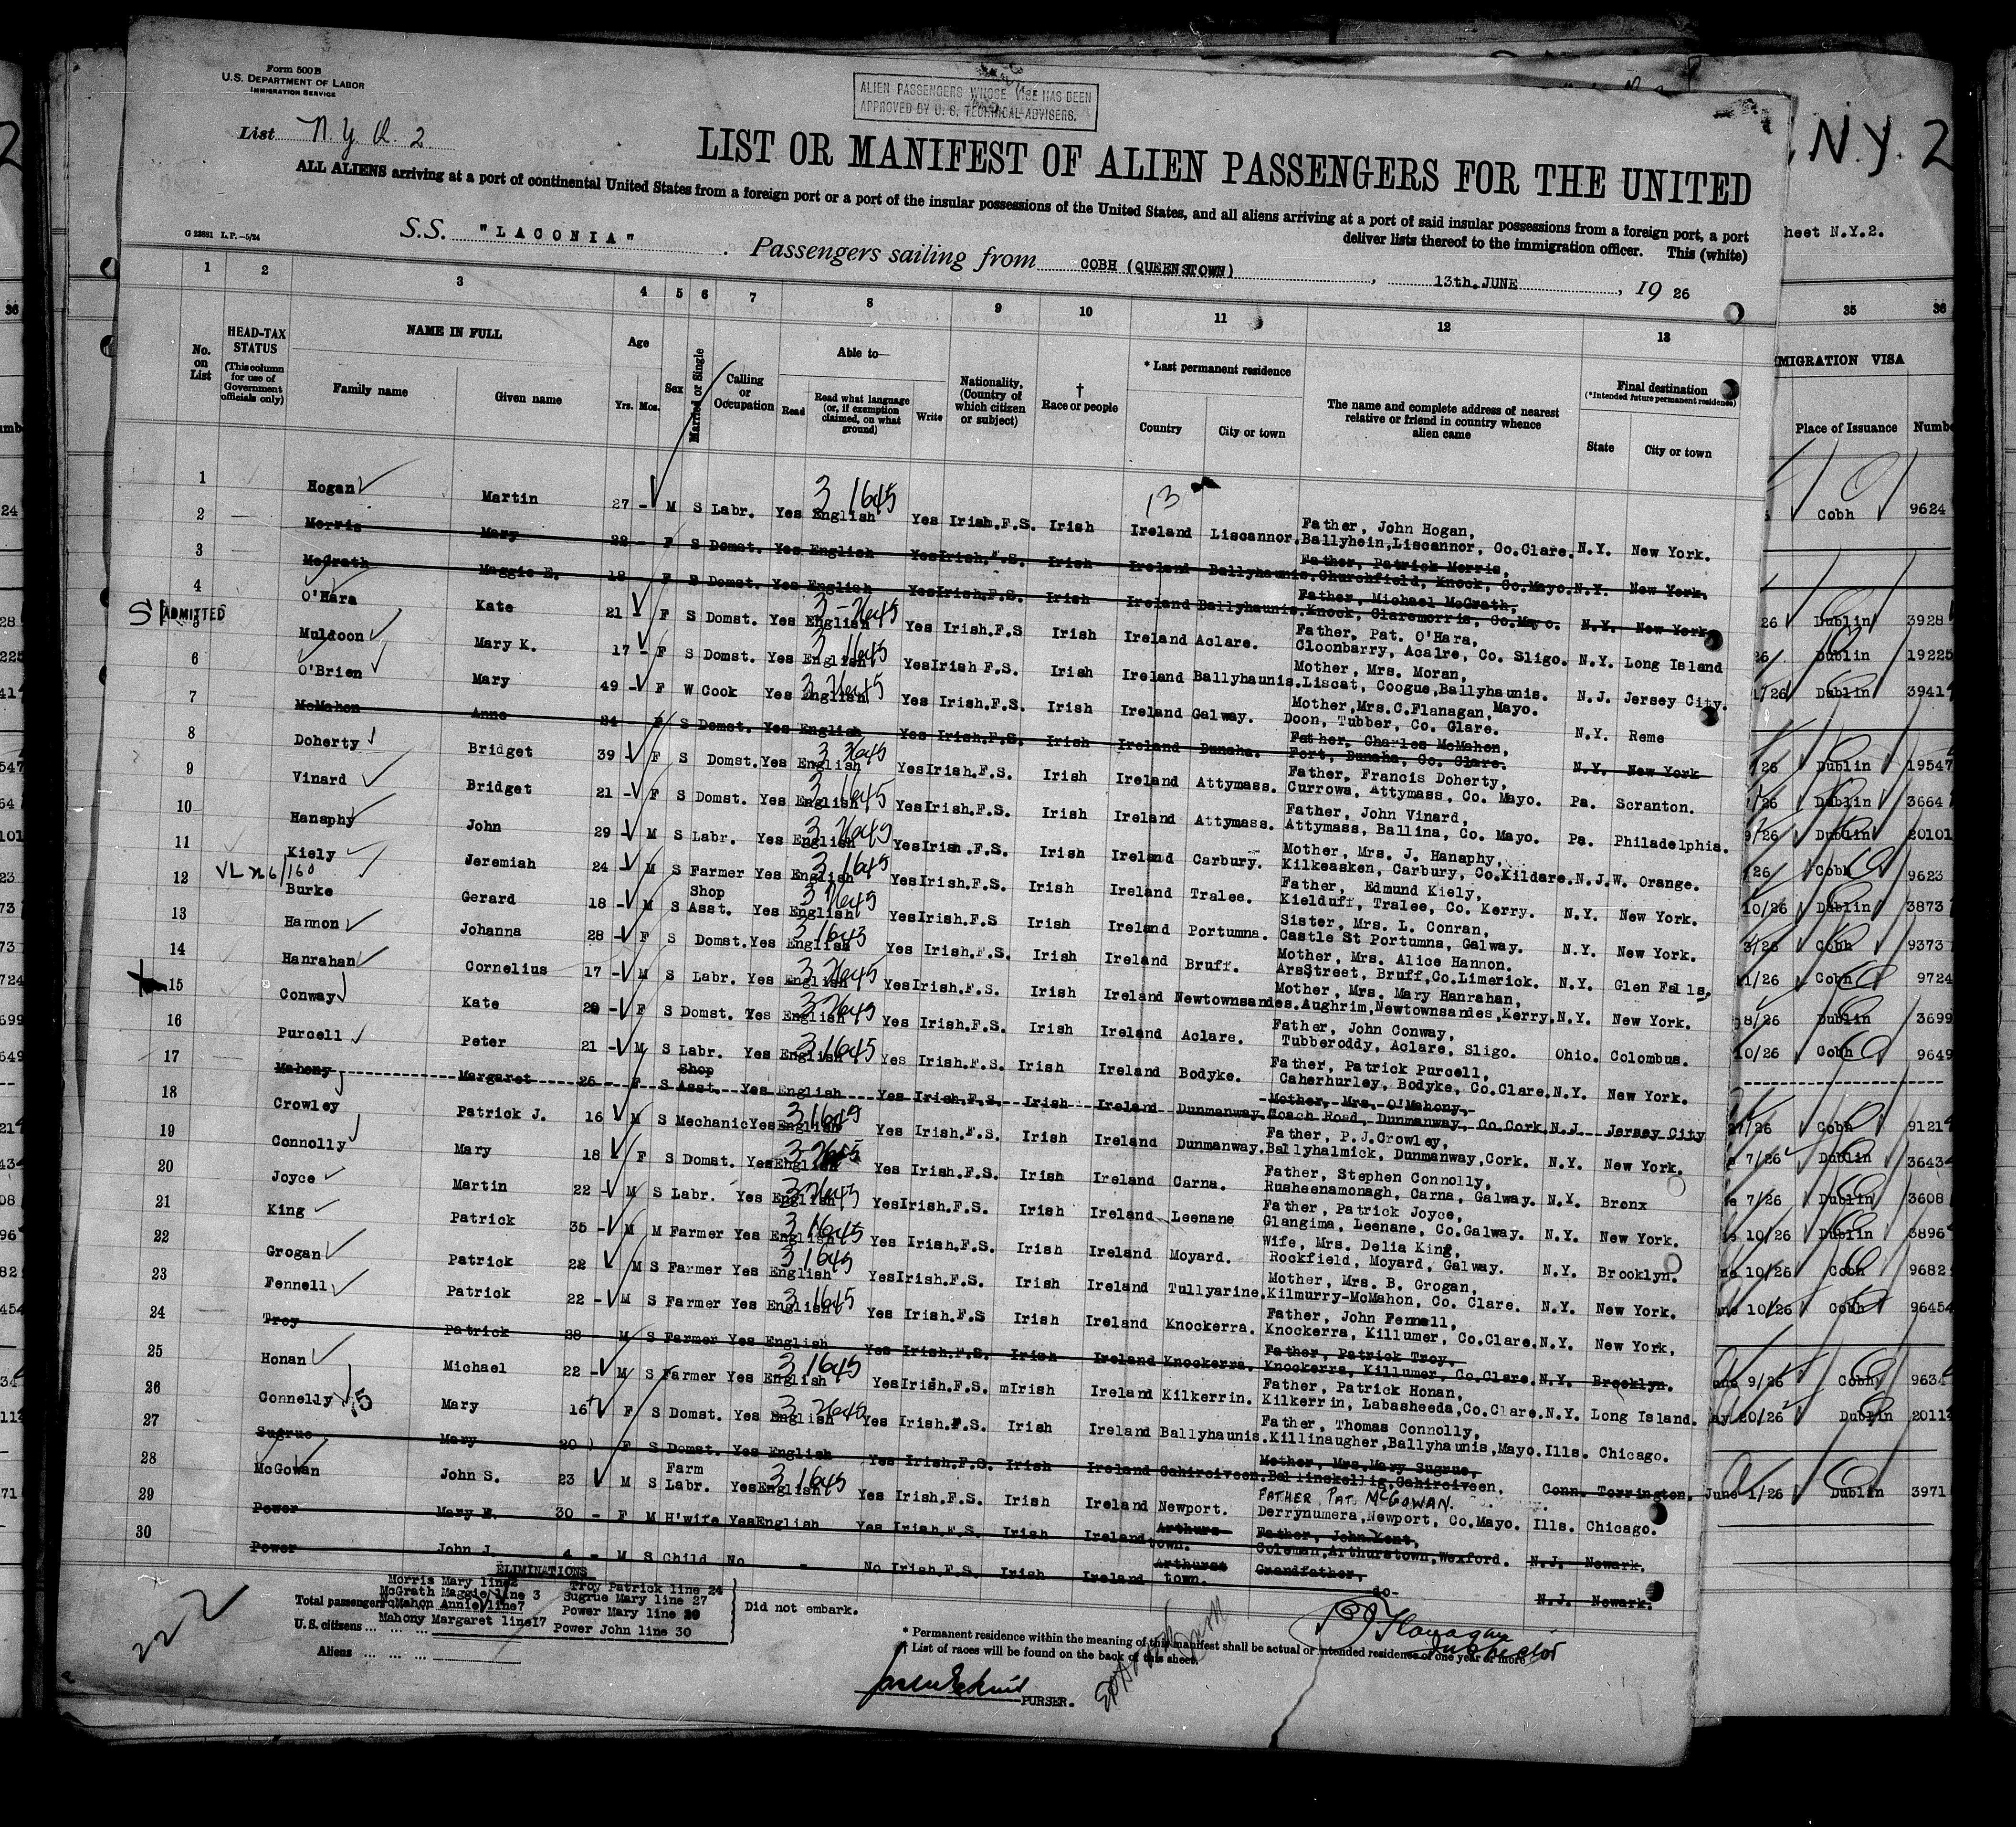 Form 500 B
U.S. DEPARTMENT OF LABOR
IMMIGRATION SERVICE
ALIEN PASSENGERS WHOSE VISE HAS BEEN
APPROVED BY U. S. TECHNICAL ADVISERS.
List N.Y. Q. 2
LIST OR MANIFEST OF ALIEN PASSENGERS FOR THE UNITED
N.Y. 2
ALL ALIENS arriving at a port of continental United States from a foreign port or a port of the insular possessions of the United States, and all aliens arriving at a port of said insular possessions from a foreign port, a port
deliver lists thereof to the immigration officer. This (white)
heet N.Y.2.
G 23881 L.P.—5/24
S.S. "LACONIA" Passengers sailing from COBH (QUEENSTOWN), 13th.JUNE, 19 26
1 2 3 4 5 6 7 8 9 10 11 12 13 35 36
No. on List
HEAD-TAX STATUS
(This column for use of Government officials only)
NAME IN FULL
Family name Given name
Age
Yrs. Mos.
Sex
Married or Single
Calling or Occupation
Able to—
Read
Read what language (or, if exemption claimed, on what ground)
Write
Nationality, (Country of which citizen or subject)
† Race or people
* Last permanent residence
Country City or town
The name and complete address of nearest relative or friend in country whence alien came
Final destination
(*Intended future permanent residence)
State City or town
MIGRATION VISA
Place of Issuance Numb
1 Hogan Martin 27 - M S Labr. Yes English Yes Irish.F.S. Irish Ireland Liscannor. Father, John Hogan, Ballyhein,Liscannor, Co.Clare. N.Y. New York. Cobh 9624
2 Morris Mary 22 - F S Domst. Yes English Yes Irish.F.S. Irish Ireland Ballyhaunis. Father, Patrick Morris, Churchfield, Knock, Co.Mayo. N.Y. New York.
3 McGrath Maggie E. 18 F S Domst. Yes English Yes Irish.F.S. Irish Ireland Ballyhaunis. Father, Michael McGrath, Knock, Claremorris, Co.Mayo. N.Y. New York.
4 O'Hara Kate 21 - F S Domst. Yes English Yes Irish.F.S Irish Ireland Aclare. Father, Pat. O'Hara, Cloonbarry, Acalre, Co. Sligo. N.Y. Long Island 26 Dublin 3928
ADMITTED
5 Muldoon Mary K. 17 - F S Domst. Yes English Yes Irish F.S. Irish Ireland Ballyhaunis. Mother, Mrs. Moran, Liscat, Coogue,Ballyhaunis. Mayo. N.J. Jersey City. 26 Dublin 19225
6 O'Brien Mary 49 - F W Cook Yes English Yes Irish.F.S. Irish Ireland Galway. Mother,Mrs.C.Flanagan, Doon, Tubber, Co. Clare. N.Y. Rome 1/26 Dublin 3941
7 McMahon Anne 24 F S Domst. Yes English Yes Irish.F.S. Irish Ireland Dunaha. Father, Charles McMahon, Fort, Dunaha, Co. Clare. N.Y. New York
8 Doherty Bridget 39 - F S Domst. Yes English Yes Irish.F.S. Irish Ireland Attymass. Father, Francis Doherty, Currowa, Attymass, Co. Mayo. Pa. Scranton. /26 Dublin 19547
9 Vinard Bridget 21 - F S Domst. Yes English Yes Irish.F.S. Irish Ireland Attymass. Father, John Vinard, Attymass, Ballina, Co. Mayo. Pa. Philadelphia. /26 Dublin 3664
10 Hanaphy John 29 - M S Labr. Yes English Yes Irish.F.S. Irish Ireland Carbury. Mother, Mrs. J. Hanaphy, Kilkeasken, Carbury, Co.Kildare. N.J. W. Orange. 9/26 Dublin 20101
11 Kiely Jeremiah 24 - M S Farmer Yes English Yes Irish.F.S. Irish Ireland Tralee. Father, Edmund Kiely, Kielduff, Tralee, Co. Kerry. N.Y. New York. /26 Cobh 9623
12 Burke Gerard 18 - M S Shop Asst. Yes English Yes Irish.F.S Irish Ireland Portumna. Sister, Mrs. L. Conran, Castle St Portumna, Galway. N.Y. New York. 10/26 Dublin 3873
13 Hannon Johanna 28 - F S Domst. Yes English Yes Irish.F.S. Irish Ireland Bruff. Mother, Mrs. Alice Hannon. Street, Bruff,Co.Limerick. N.Y. Glen Falls. 3/26 Cobh 9373
14 Hanrahan Cornelius 17 - M S Labr. Yes English Yes Irish.F.S. Irish Ireland Newtownsandes. Mother, Mrs. Mary Hanrahan, Aughrim,Newtownsandes,Kerry. N.Y. New York. 11/26 Cobh 9724
15 Conway Kate 20 - F S Domst. Yes English Yes Irish.F.S. Irish Ireland Aclare. Father, John Conway, Tubberoddy, Aclare, Sligo. Ohio. Colombus. 8/26 Dublin 3699
16 Purcell Peter 21 - M S Labr. Yes English Yes Irish.F.S. Irish Ireland Bodyke. Father, Patrick Purcell, Caherhurley, Bodyke, Co.Clare. N.Y. New York. 10/26 Cobh 9649
17 Mahony Margaret 26 F S Shop Asst. Yes English Yes Irish.F.S. Irish Ireland Dunmanway. Mother, Mrs. O'Mahony, Coach Road, Dunmanway, Co.Cork. N.J. Jersey City
18 Crowley Patrick J. 16 M S Mechanic Yes English Yes Irish.F.S. Irish Ireland Dunmanway. Father, P.J.Crowley, Ballyhalmick, Dunmanway,Cork. N.Y. New York. /26 Cobh 9121
19 Connolly Mary 18 F S Domst. Yes English Yes Irish.F.S. Irish Ireland Carna. Father, Stephen Connolly, Rusheenamonagh, Carna, Galway. N.Y. Bronx 7/26 Dublin 3643
20 Joyce Martin 22 - M S Labr. Yes English Yes Irish.F.S. Irish Ireland Leenane Father, Patrick Joyce, Glangima, Leenane, Co.Galway. N.Y. New York. 7/26 Dublin 3608
21 King Patrick 35 - M M Farmer Yes English Yes Irish.F.S. Irish Ireland Moyard. Wife, Mrs. Delia King, Rockfield, Moyard, Galway. N.Y. Brooklyn. 10/26 Dublin 3896
22 Grogan Patrick 22 M S Farmer Yes English Yes Irish.F.S. Irish Ireland Tullyarine. Mother, Mrs. B. Grogan, Kilmurry-McMahon, Co. Clare. N.Y. New York. 10/26 Cobh 9682
23 Fennell Patrick 22 - M S Farmer Yes English Yes Irish.F.S Irish Ireland Knockerra. Father, John Fennell, Knockerra, Killumer, Co.Clare. N.Y. New York. 10/26 Cobh 9645
24 Troy Patrick 28 - M S Farmer Yes English Yes Irish.F.S. Irish Ireland Knockerra. Father, Patrick Troy, Knockerra, Killumer, Co.Clare. N.Y. Brooklyn.
25 Honan Michael 22 - M S Farmer Yes English Yes Irish.F.S. mIrish Ireland Kilkerrin. Father, Patrick Honan, Kilkerrin, Labasheeda,Co.Clare. N.Y. Long Island. 9/26 Cobh 9634
26 Connelly Mary 16 F S Domst. Yes English Yes Irish.F.S. Irish Ireland Ballyhaunis. Father, Thomas Connolly, Killinaugher,Ballyhaunis,Mayo. Ills. Chicago. ay 20/26 Dublin 2011
27 Sugrue Mary 20 F S Domst. Yes English Yes Irish.F.S. Irish Ireland Cahirciveen. Mother, Mrs.Mary Sugrue, Ballinskellig,Cahirciveen. Conn. Torrington.
28 McGowan John S. 23 M S Farm Labr. Yes English Yes Irish.F.S. Irish Ireland Newport. FATHER, PAT. McGOWAN. Derrynumera,Newport, Co.Mayo. Ills. Chicago. June 1/26 Dublin 3971
29 Power Mary E. 30 - F M H'wife Yes English Yes Irish.F.S. Irish Ireland Arthurs-town. Father, John Kent, Coleman,Arthurstown,Wexford. N.J. Newark.
30 Power John J. 4 - M S Child No - No Irish.F.S. Irish Ireland Arthurst town. Grandfather, -do- N.J. Newark.
ELIMINATIONS
Morris Mary line 2 Troy Patrick line 24
McGrath Maggie line 3 Sugrue Mary line 27
McMahon Annie line 7 Power Mary line 29
Mahony Margaret line17 Power John line 30
Did not embark.
Total passengers
U.S. citizens ... ... ...
Aliens ... ... ...
222
* Permanent residence within the meaning of this manifest shall be actual or intended residence of one year or more
† List of races will be found on the back of this sheet.
Flanagan
Inspector
PURSER.